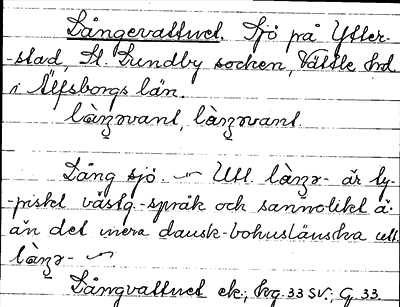 Långevattnet. Sjö på Ytter-
-stad, St. Lundby socken, Vättle hrd
i Älfsborgs län.
Lång sjö. — Utt. är ty-
-piskt västg.-språk och sannolikt ä.
än det mera dansk-bohuslänska utt.
Långvattnet ek; hvg. 33 SV.; G. 33